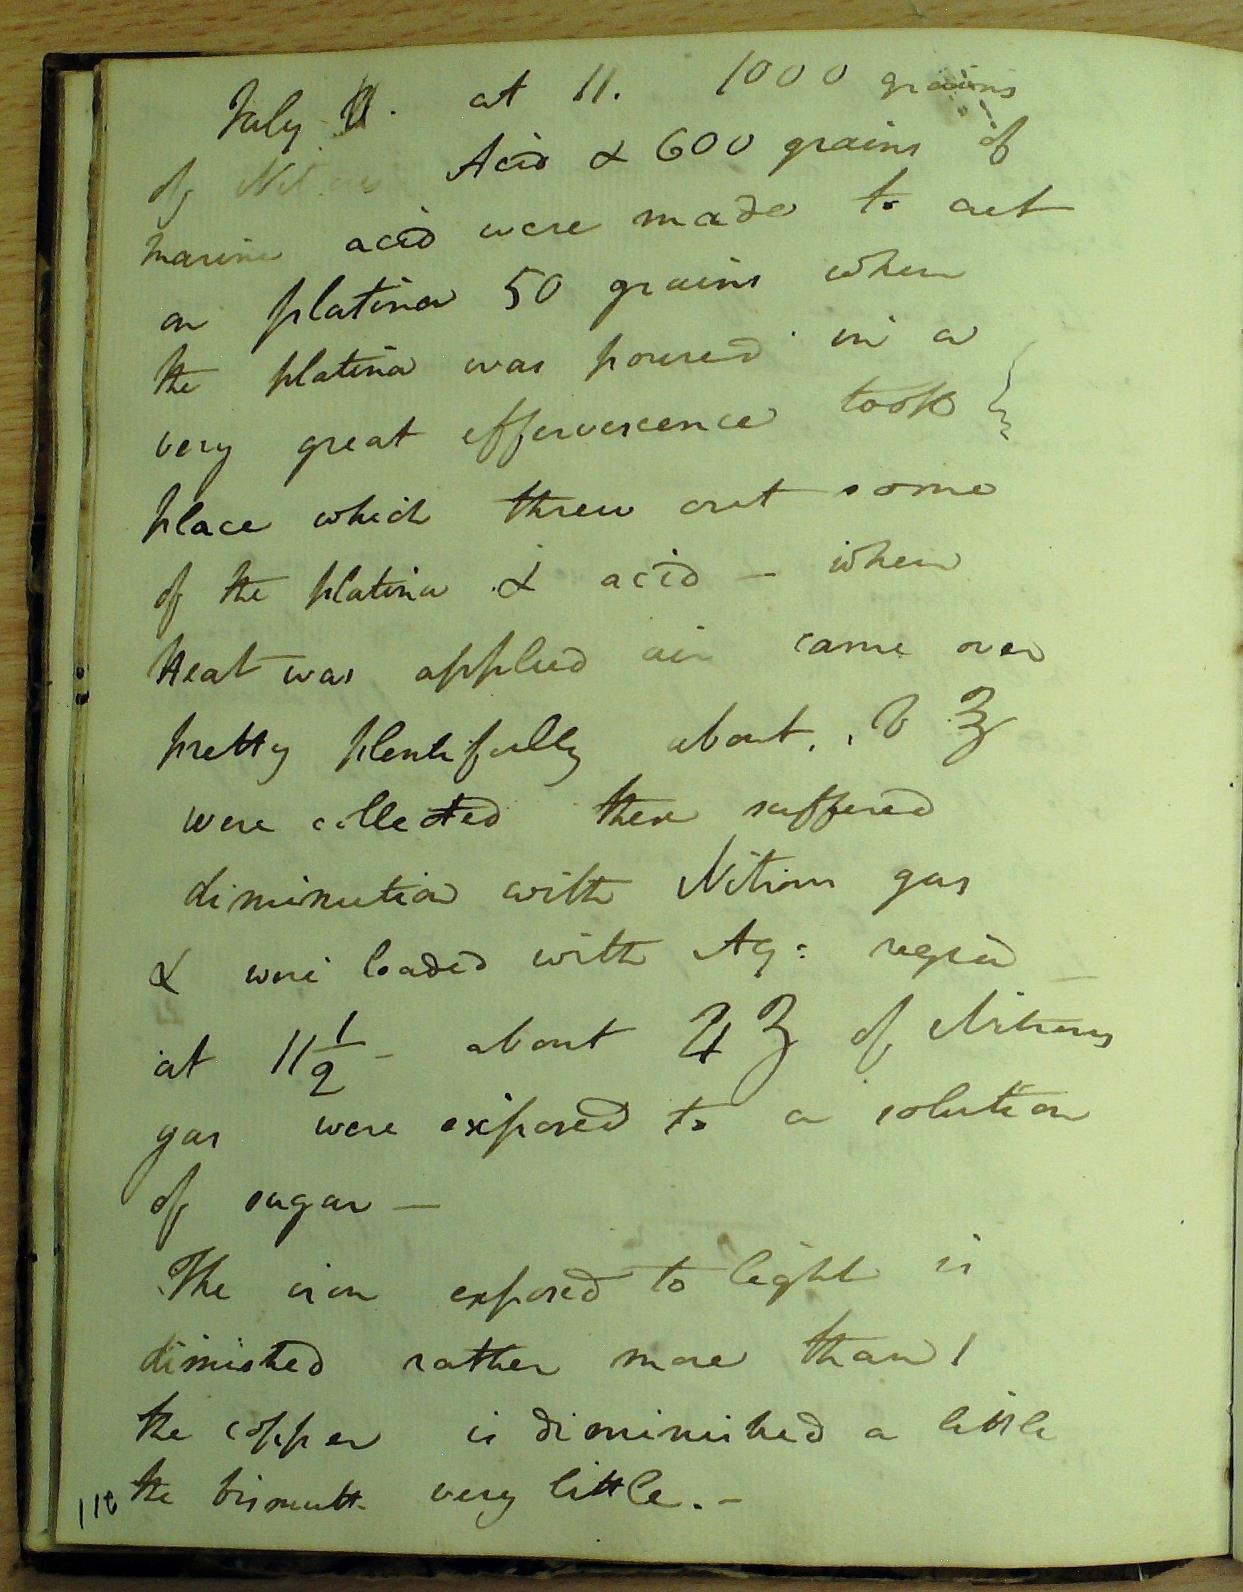 July 11. at 11. 1000 grains
of Nitrous Acid & 600 grains of
marine acid were made to act
on platina 50 grains when
the platina was poured in a
very great effervescence took
place which threw out some
of the platina & acid – when
Heat was applied air came over
pretty plentifully about ʒ
were collected these suffered
diminution with Nitrous gas
& were loaded with Aq: regia –
at 11 1/2 – about 4 ʒ of Nitrous
gas were exposed to a solution
of sugar –
The iron exposed to light is
dimished rather more than 1
the copper is diminished a little
the bismuth very little. –